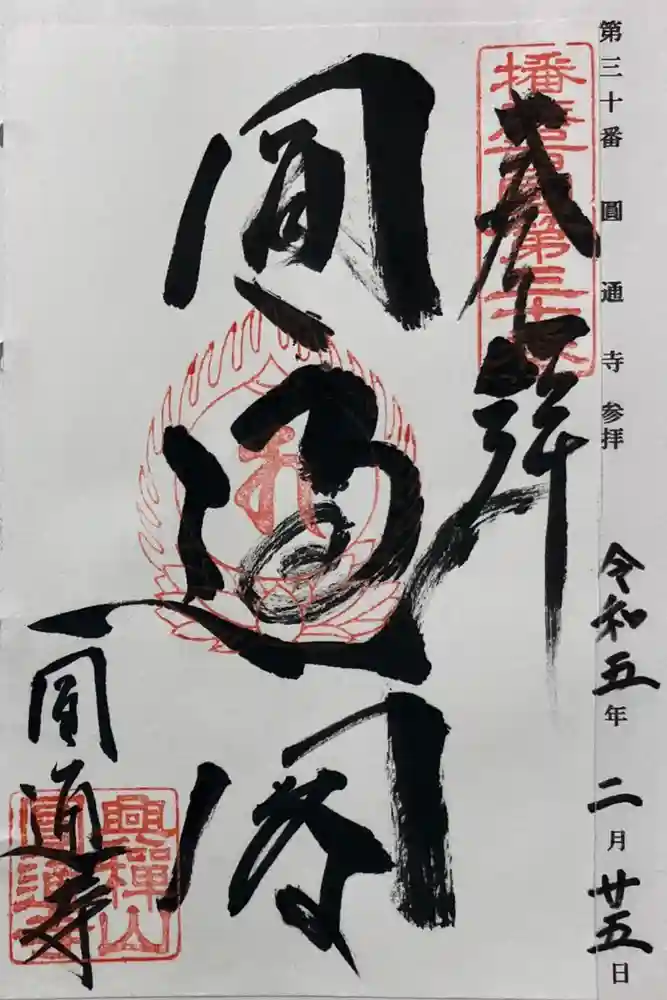 第三十番 圓通寺 参拝 令和五年 二月廿五日
播磨西國第三十番
奉拝
圓通閣
圓通寺
興禪山
圓通寺